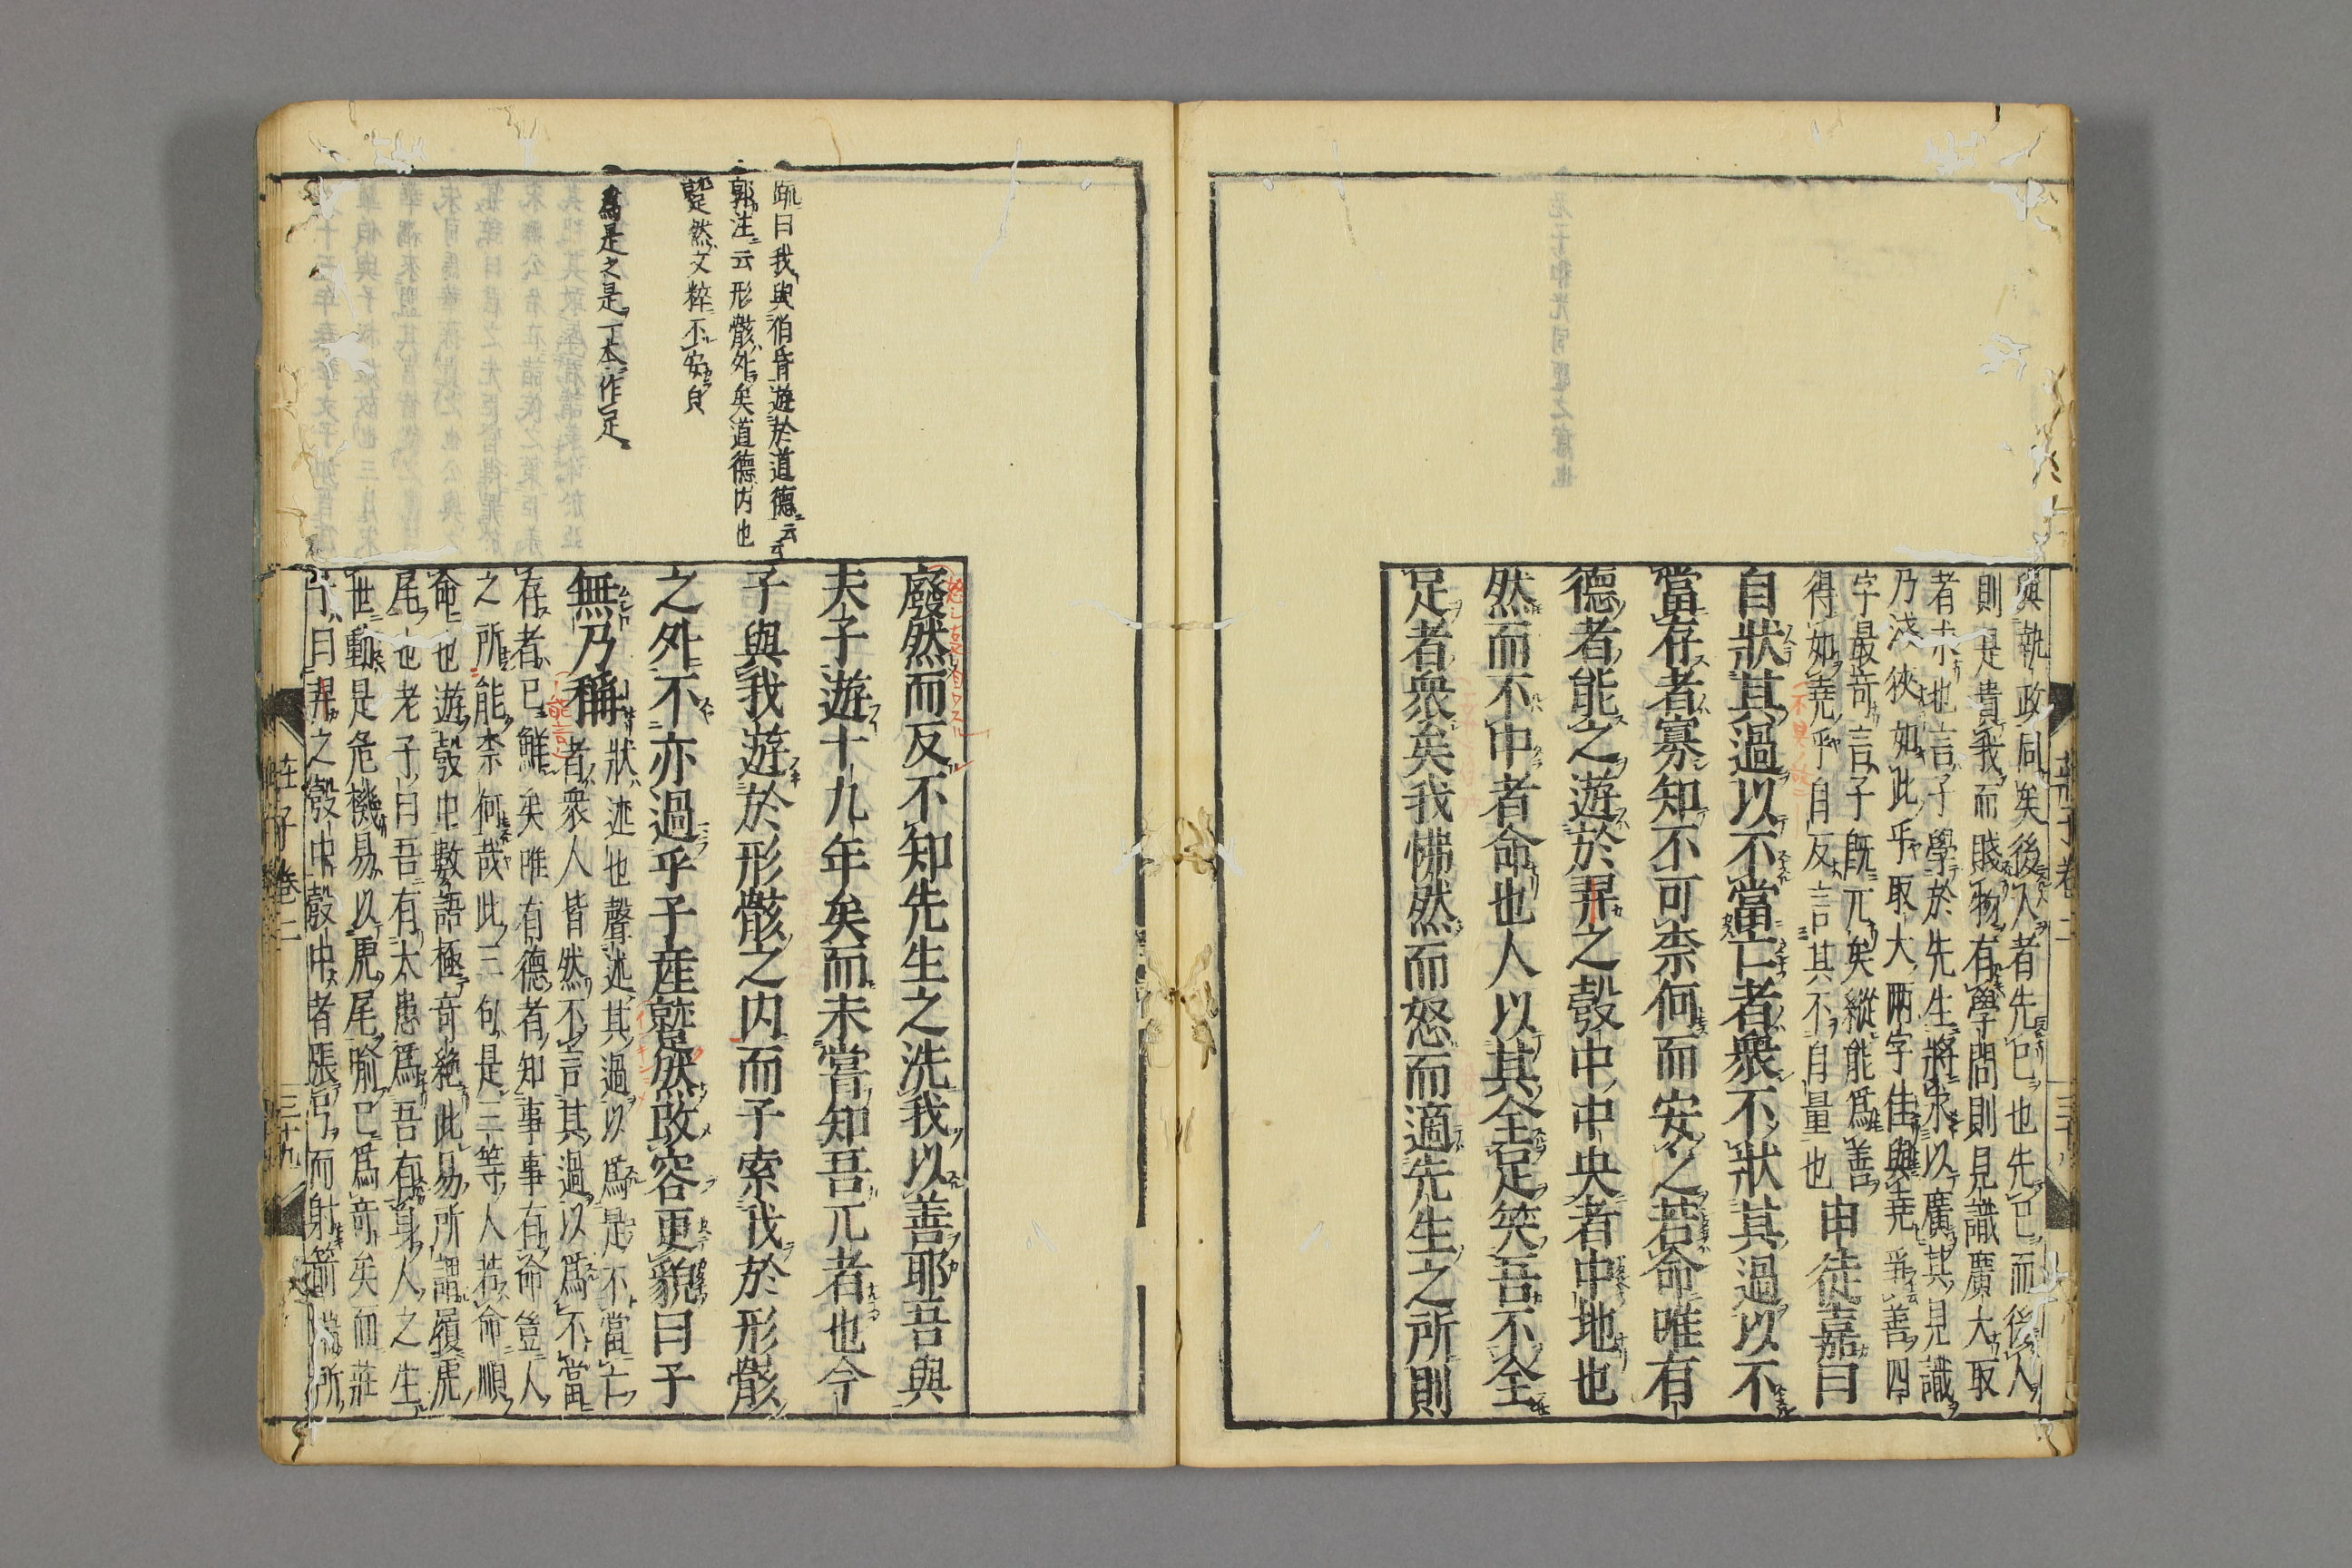 與執政同矣後人者先已也先已而後人
則是貴我而賤物有學問則見識廣大取
者求也言子學於先生將求以廣其見識
乃淺狹如此乎取大兩字佳與堯爭善四
字最奇言子既兀矣縱能爲善
得如堯乎自反言其不自量也
申徒嘉曰
自狀其過以不當亡者衆不狀其過以不
當存者寡知不可柰何而安之若命唯有
德者能之遊於羿之彀中中央者中地也
然而不中者命也人以其全足笑吾不全
足者衆矣我怫然而怒而適先生之所則
莊子卷二
疏曰我與伯昏遊於道德云云
郭注云形骸外矣道德内也
蹵然文粹不安皃
爲是之是一本作足
廢然而反不知先生之洗我以善耶吾與
夫子遊十九年矣而未嘗知吾兀者也今
子與我遊於形骸之内而子索我於形骸
之外不亦過乎子産蹵然改容更貌曰子
無乃稱
狀迹也聲述其過以爲是不當亡
者衆人皆然不言其過以爲不當
存者已鮮矣唯有德者知事事有命豈人
之所能柰何哉此三句是三等人若命順
命也遊彀中數語極奇絶此易所謂履虎
尾也老子曰吾有大患爲吾有身人之生
世動是危機易以虎尾喻已爲奇矣而莊
子曰羿之彀中彀中者張弓而射箭端所
莊子卷二
三十九